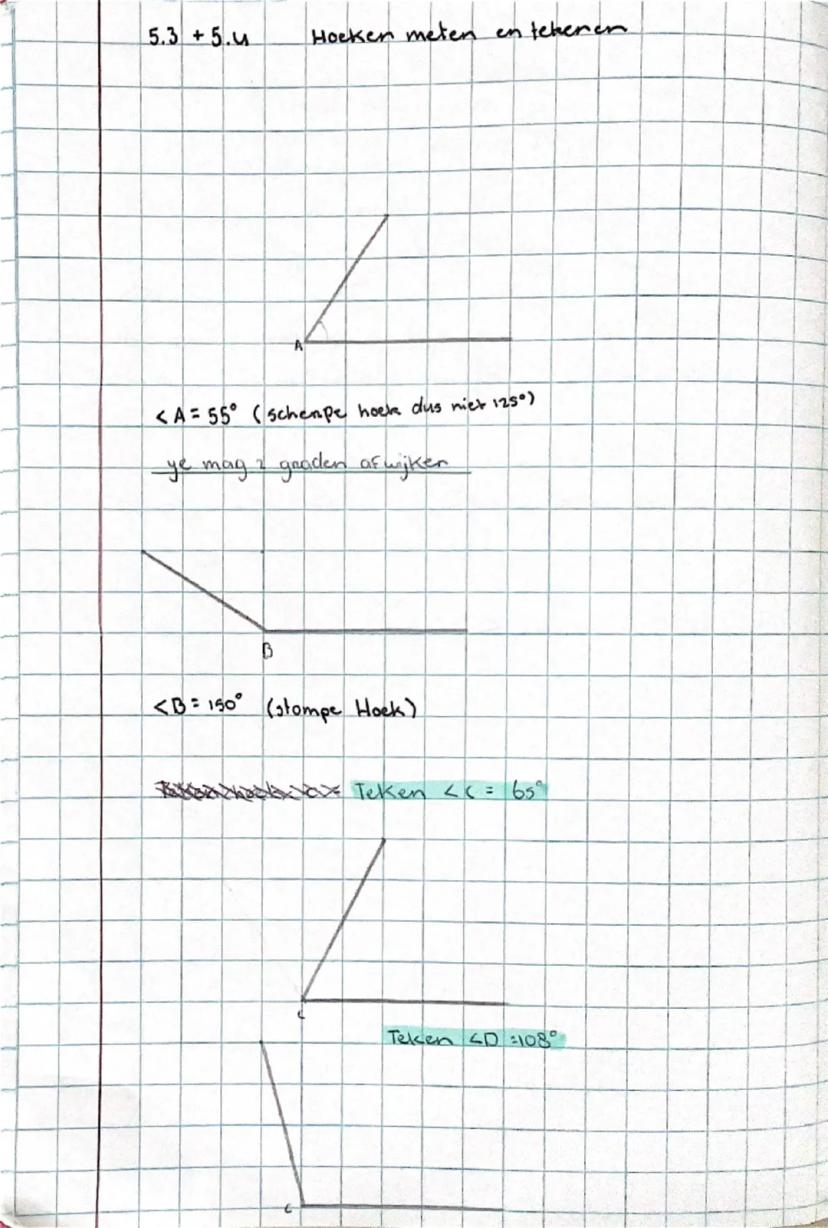 5.3 + 5.4 Hoeken meten en tekenen
A
<A = 55° (scherpe hoek dus niet 125°)
je mag 2 graden afwijken
B
<B = 150° (stompe Hoek)
Teken <C = 65°
C
Teken <D = 108°
C